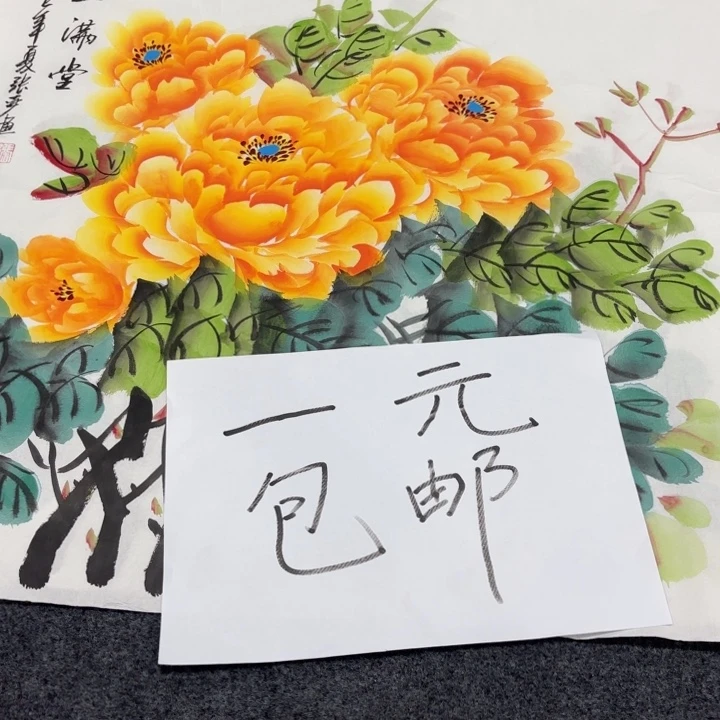 满堂
年夏张
一元
包邮